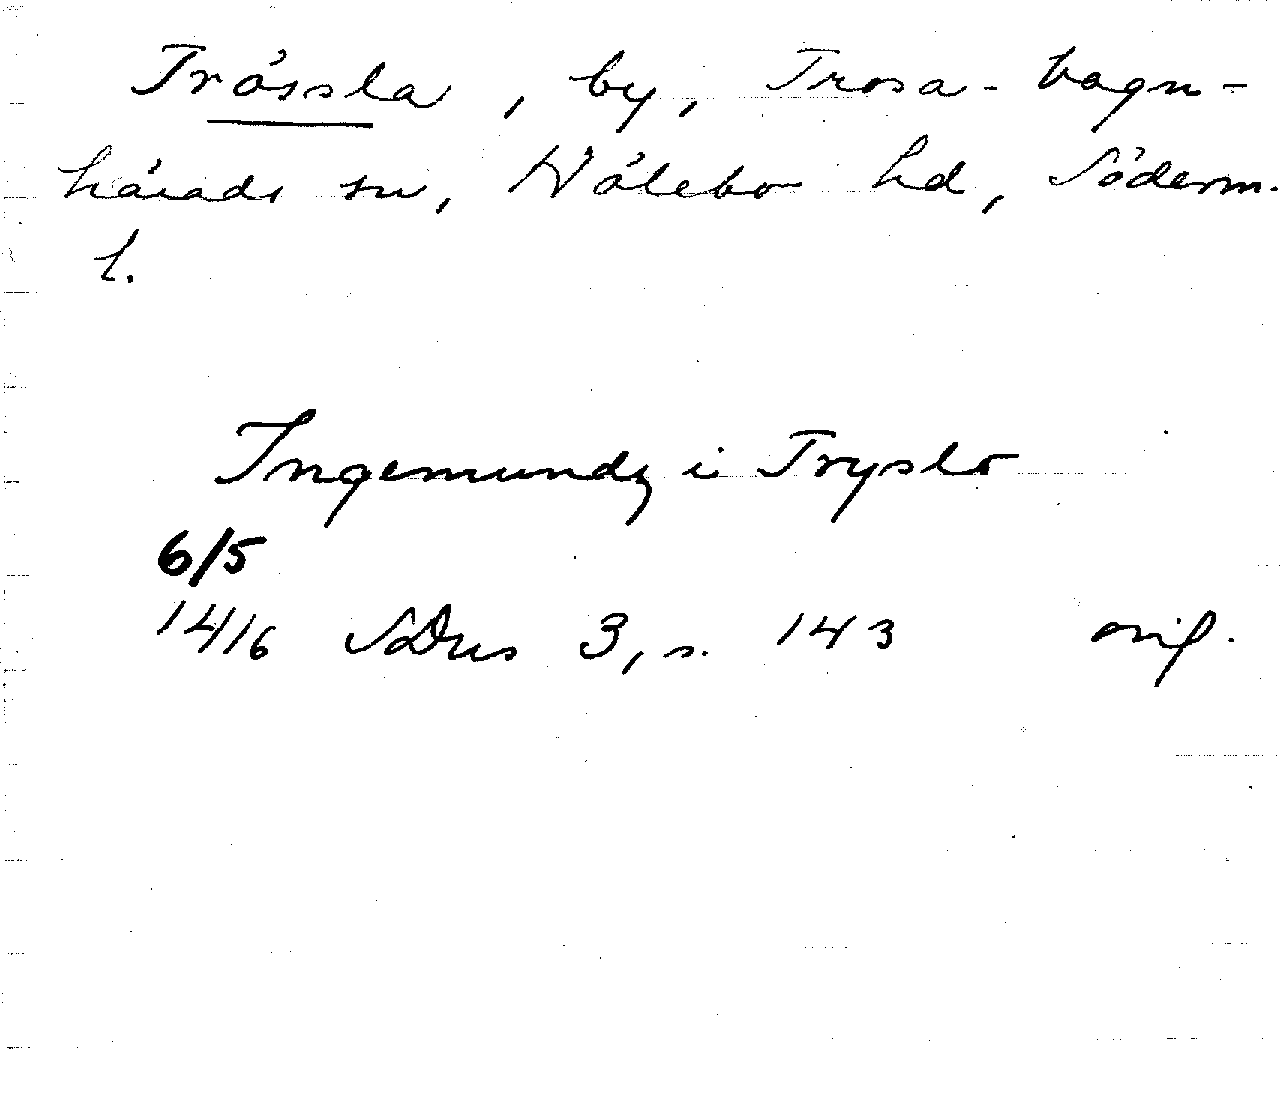 Trössla, by, Trosa-vagn-
härads sn, Hölebo hd, Söderm.
l.
Ingemundz i Tryslo
6/5
1416 SDns 3, s. 143 orig.